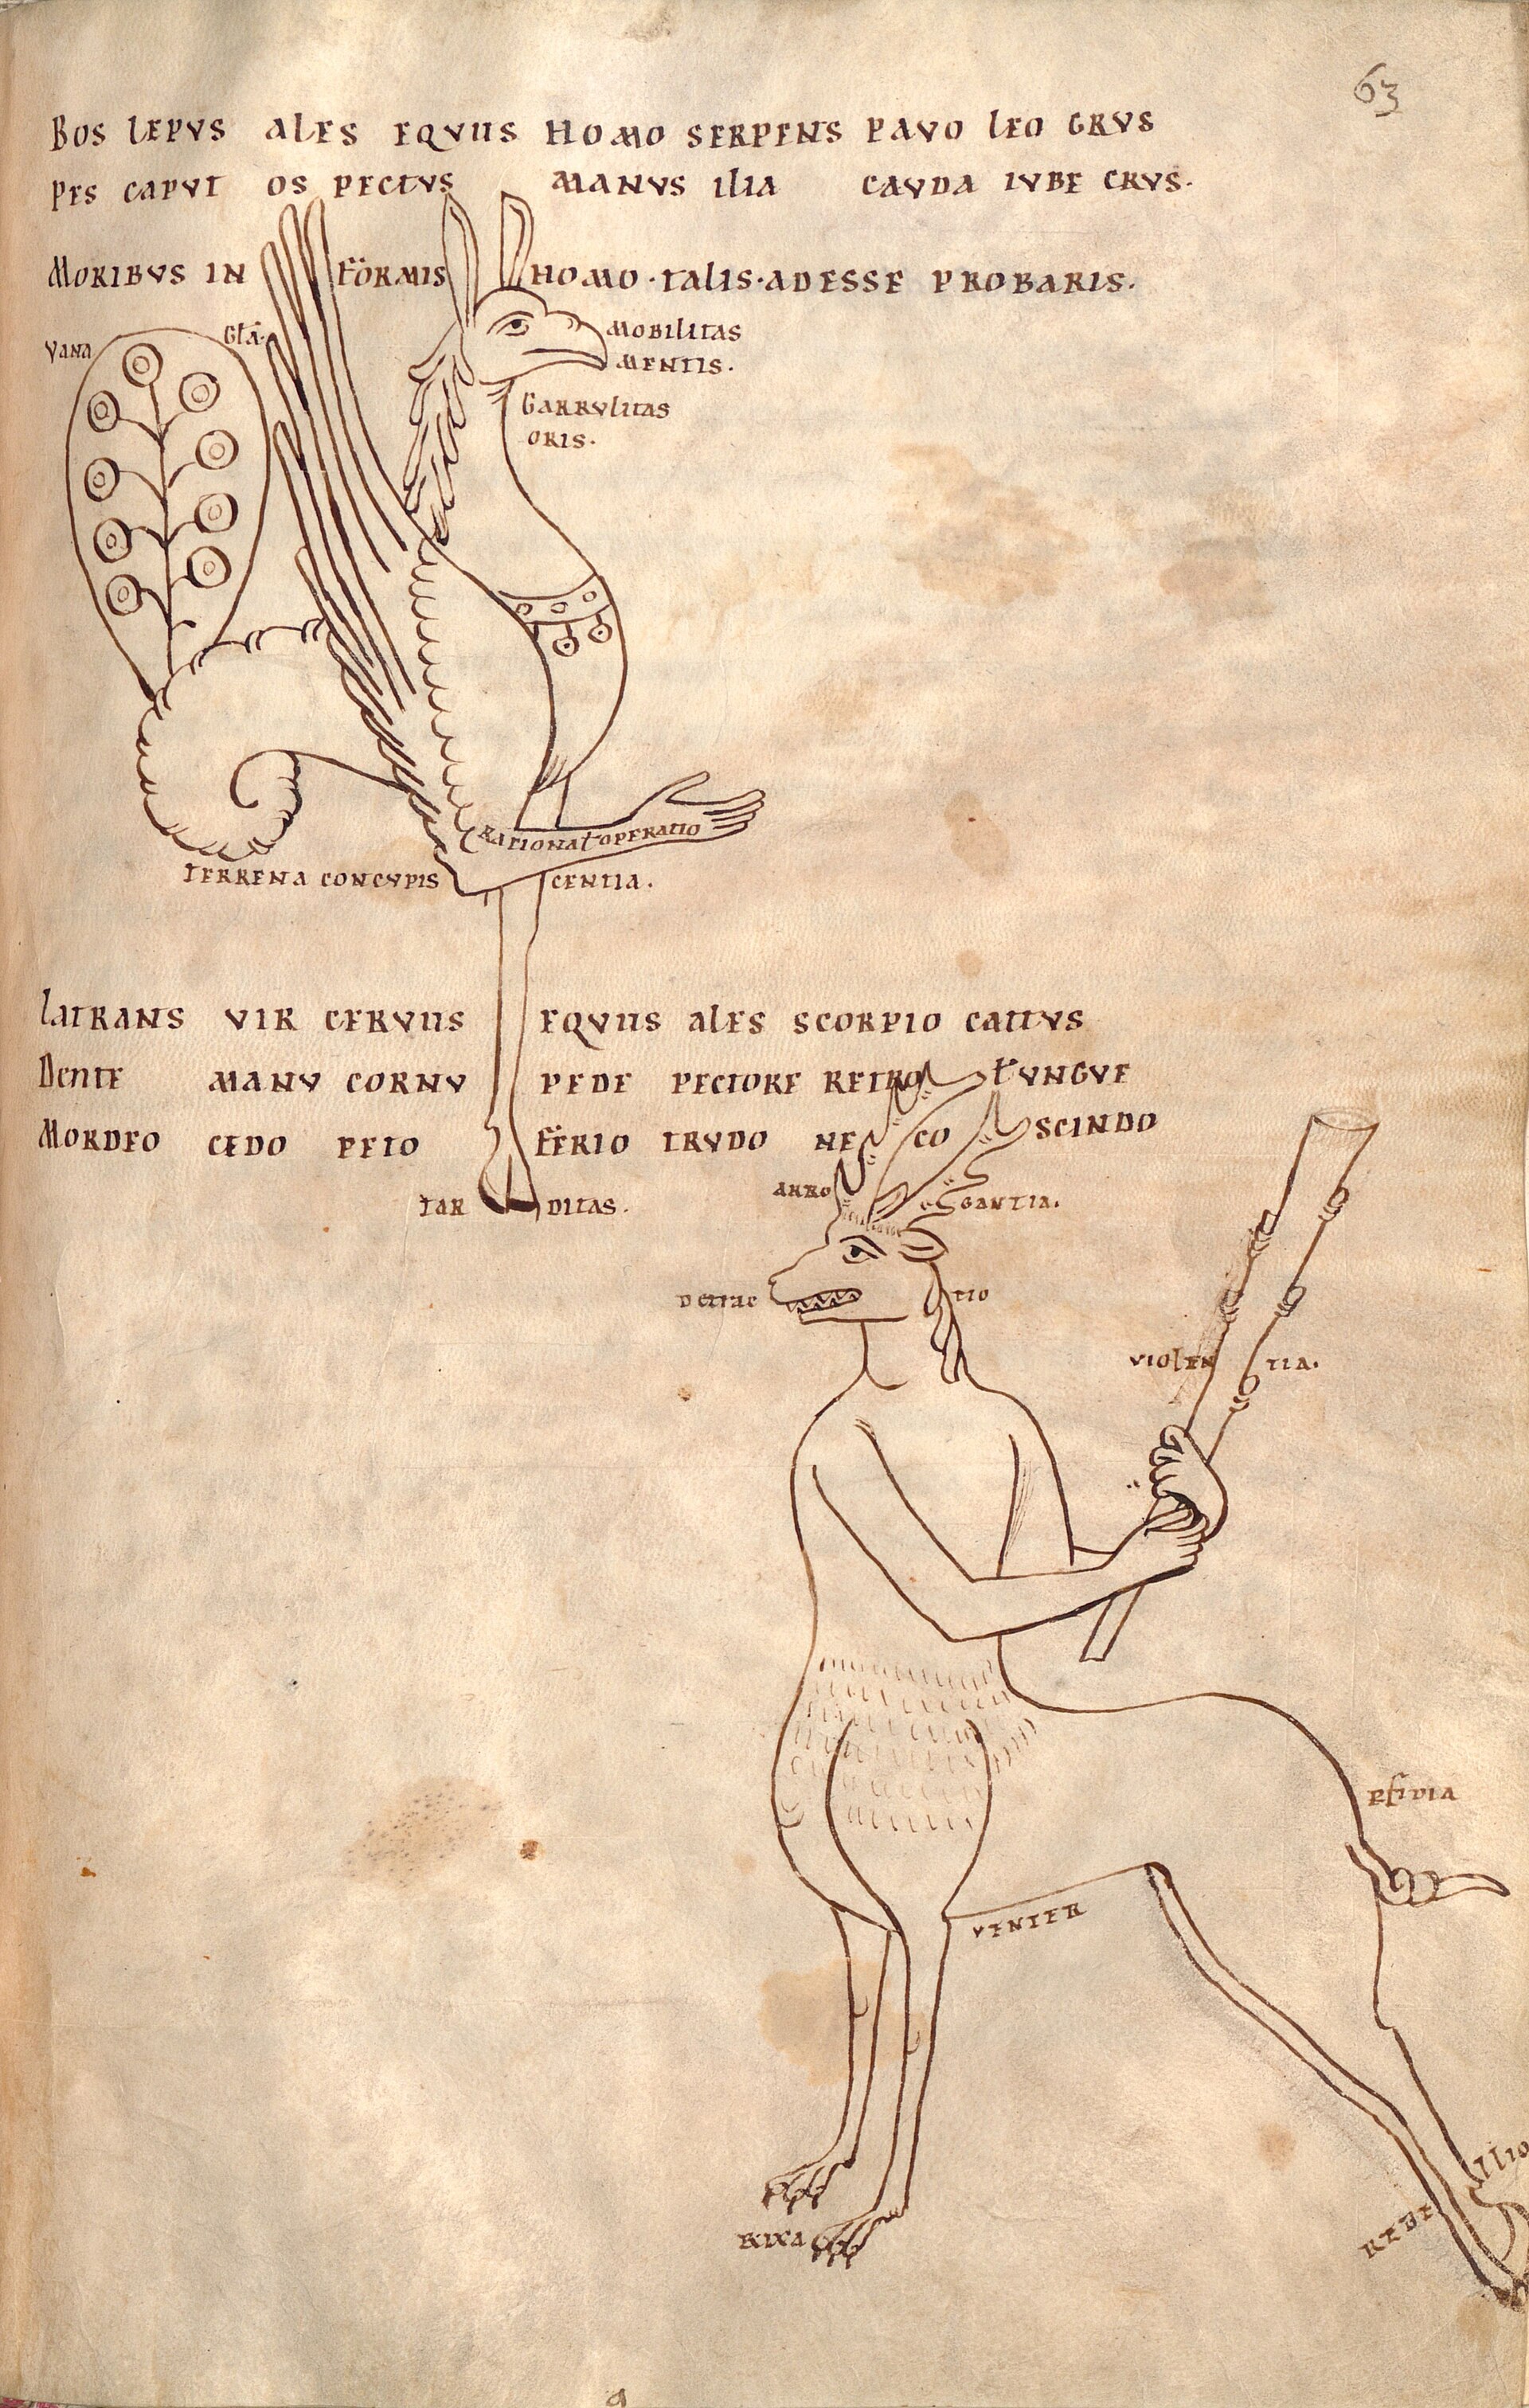 63
BOS LEPVS ALES EQVUS HOMO SERPENS PAVO LEO GRVS
PES CAPVT OS PECTVS MANVS ILIA CAVDA IVBE CRVS.
MORIBVS IN FORMIS HOMO·TALIS·ADESSE PROBARIS.
VANA GLA.
MOBILITAS
MENTIS.
GARRVLITAS
ORIS.
RATIONAL OPERATIO
TERRENA CONCVPIS CENTIA.
LATRANS VIR CERVUS EQVUS ALES SCORPIO CATTVS
DENTE MANV CORNV PEDE PECTORE RETRO VNGVE
MORDEO CEDO PETO FERIO TRVDO NE CO SCINDO
TAR DITAS.
ARRO GANTIA.
DETRAC TIO
VIOLEN TIA.
VENTER
REBE LLIO
RIXA